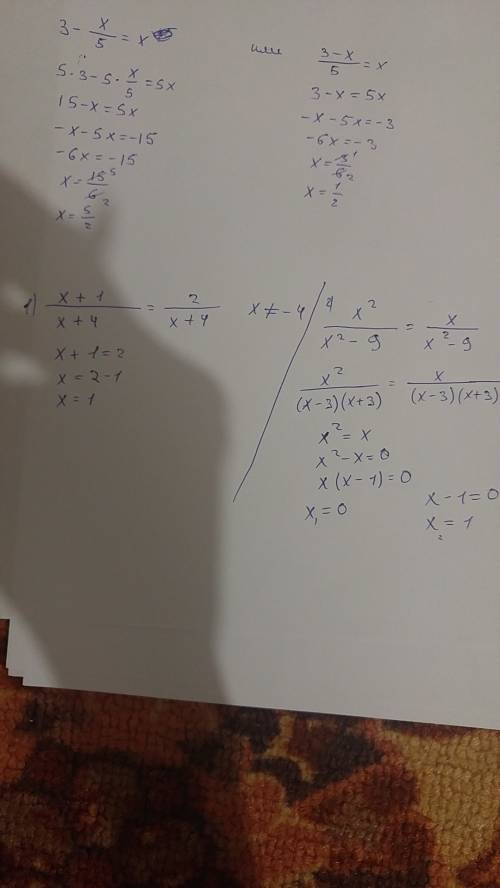 3 - x/5 = x
5·3 - 5·x/5 = 5x
15 - x = 5x
-x - 5x = -15
-6x = -15
x = 15⁵/6₂
x = 5/2
или
(3 - x)/5 = x
3 - x = 5x
-x - 5x = -3
-6x = -3
x = 3¹/6₂
x = 1/2
1) (x + 1)/(x + 4) = 2/(x + 4) x ≠ -4
x + 1 = 2
x = 2 - 1
x = 1
2) x²/(x² - 9) = x/(x² - 9)
x²/((x - 3)(x + 3)) = x/((x - 3)(x + 3))
x² = x
x² - x = 0
x(x - 1) = 0
x₁ = 0 x - 1 = 0
x₂ = 1